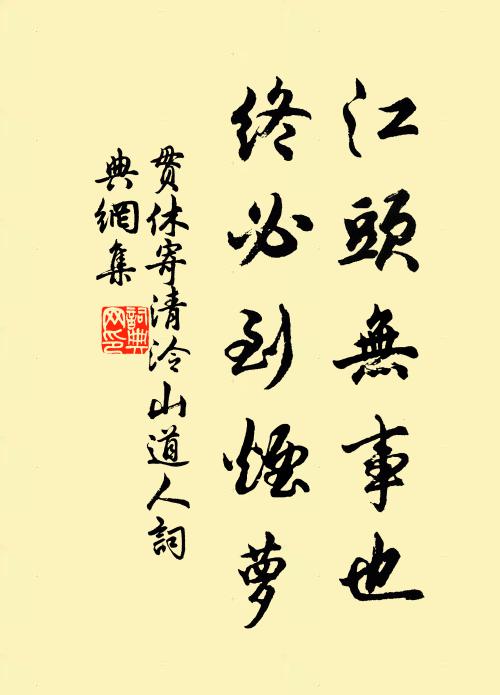 江頭無事也
終必到煙夢
貫休寄清泠山道人詞
典網集
詞典网印